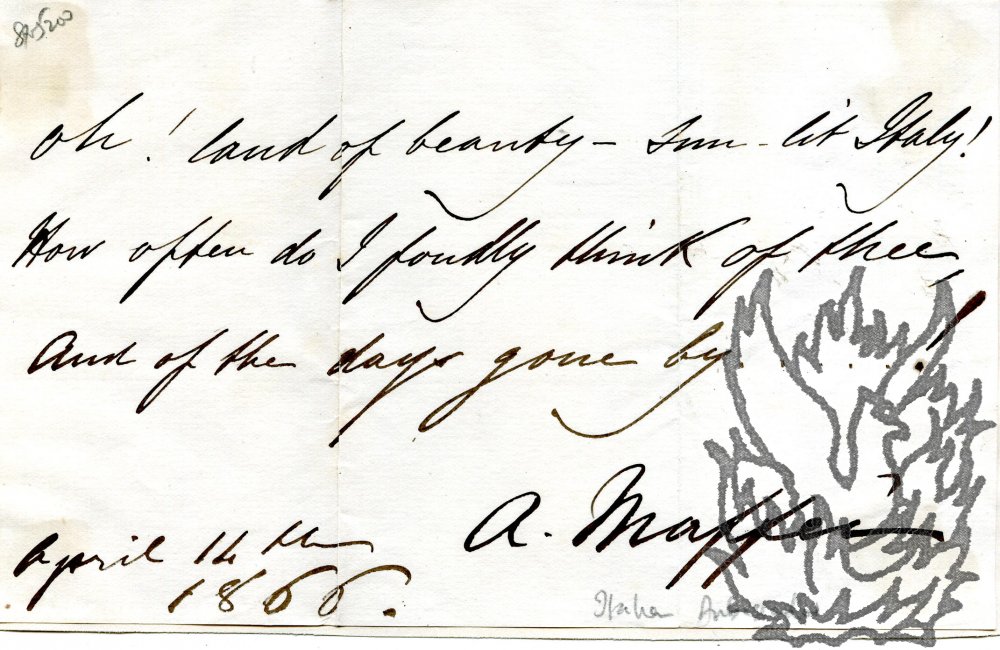 oh! land of beauty – sun-lit Italy!
How often do I fondly think of thee,
And of the days gone by . . . . . !
A. Maffei
April 14th
1866.
Italian